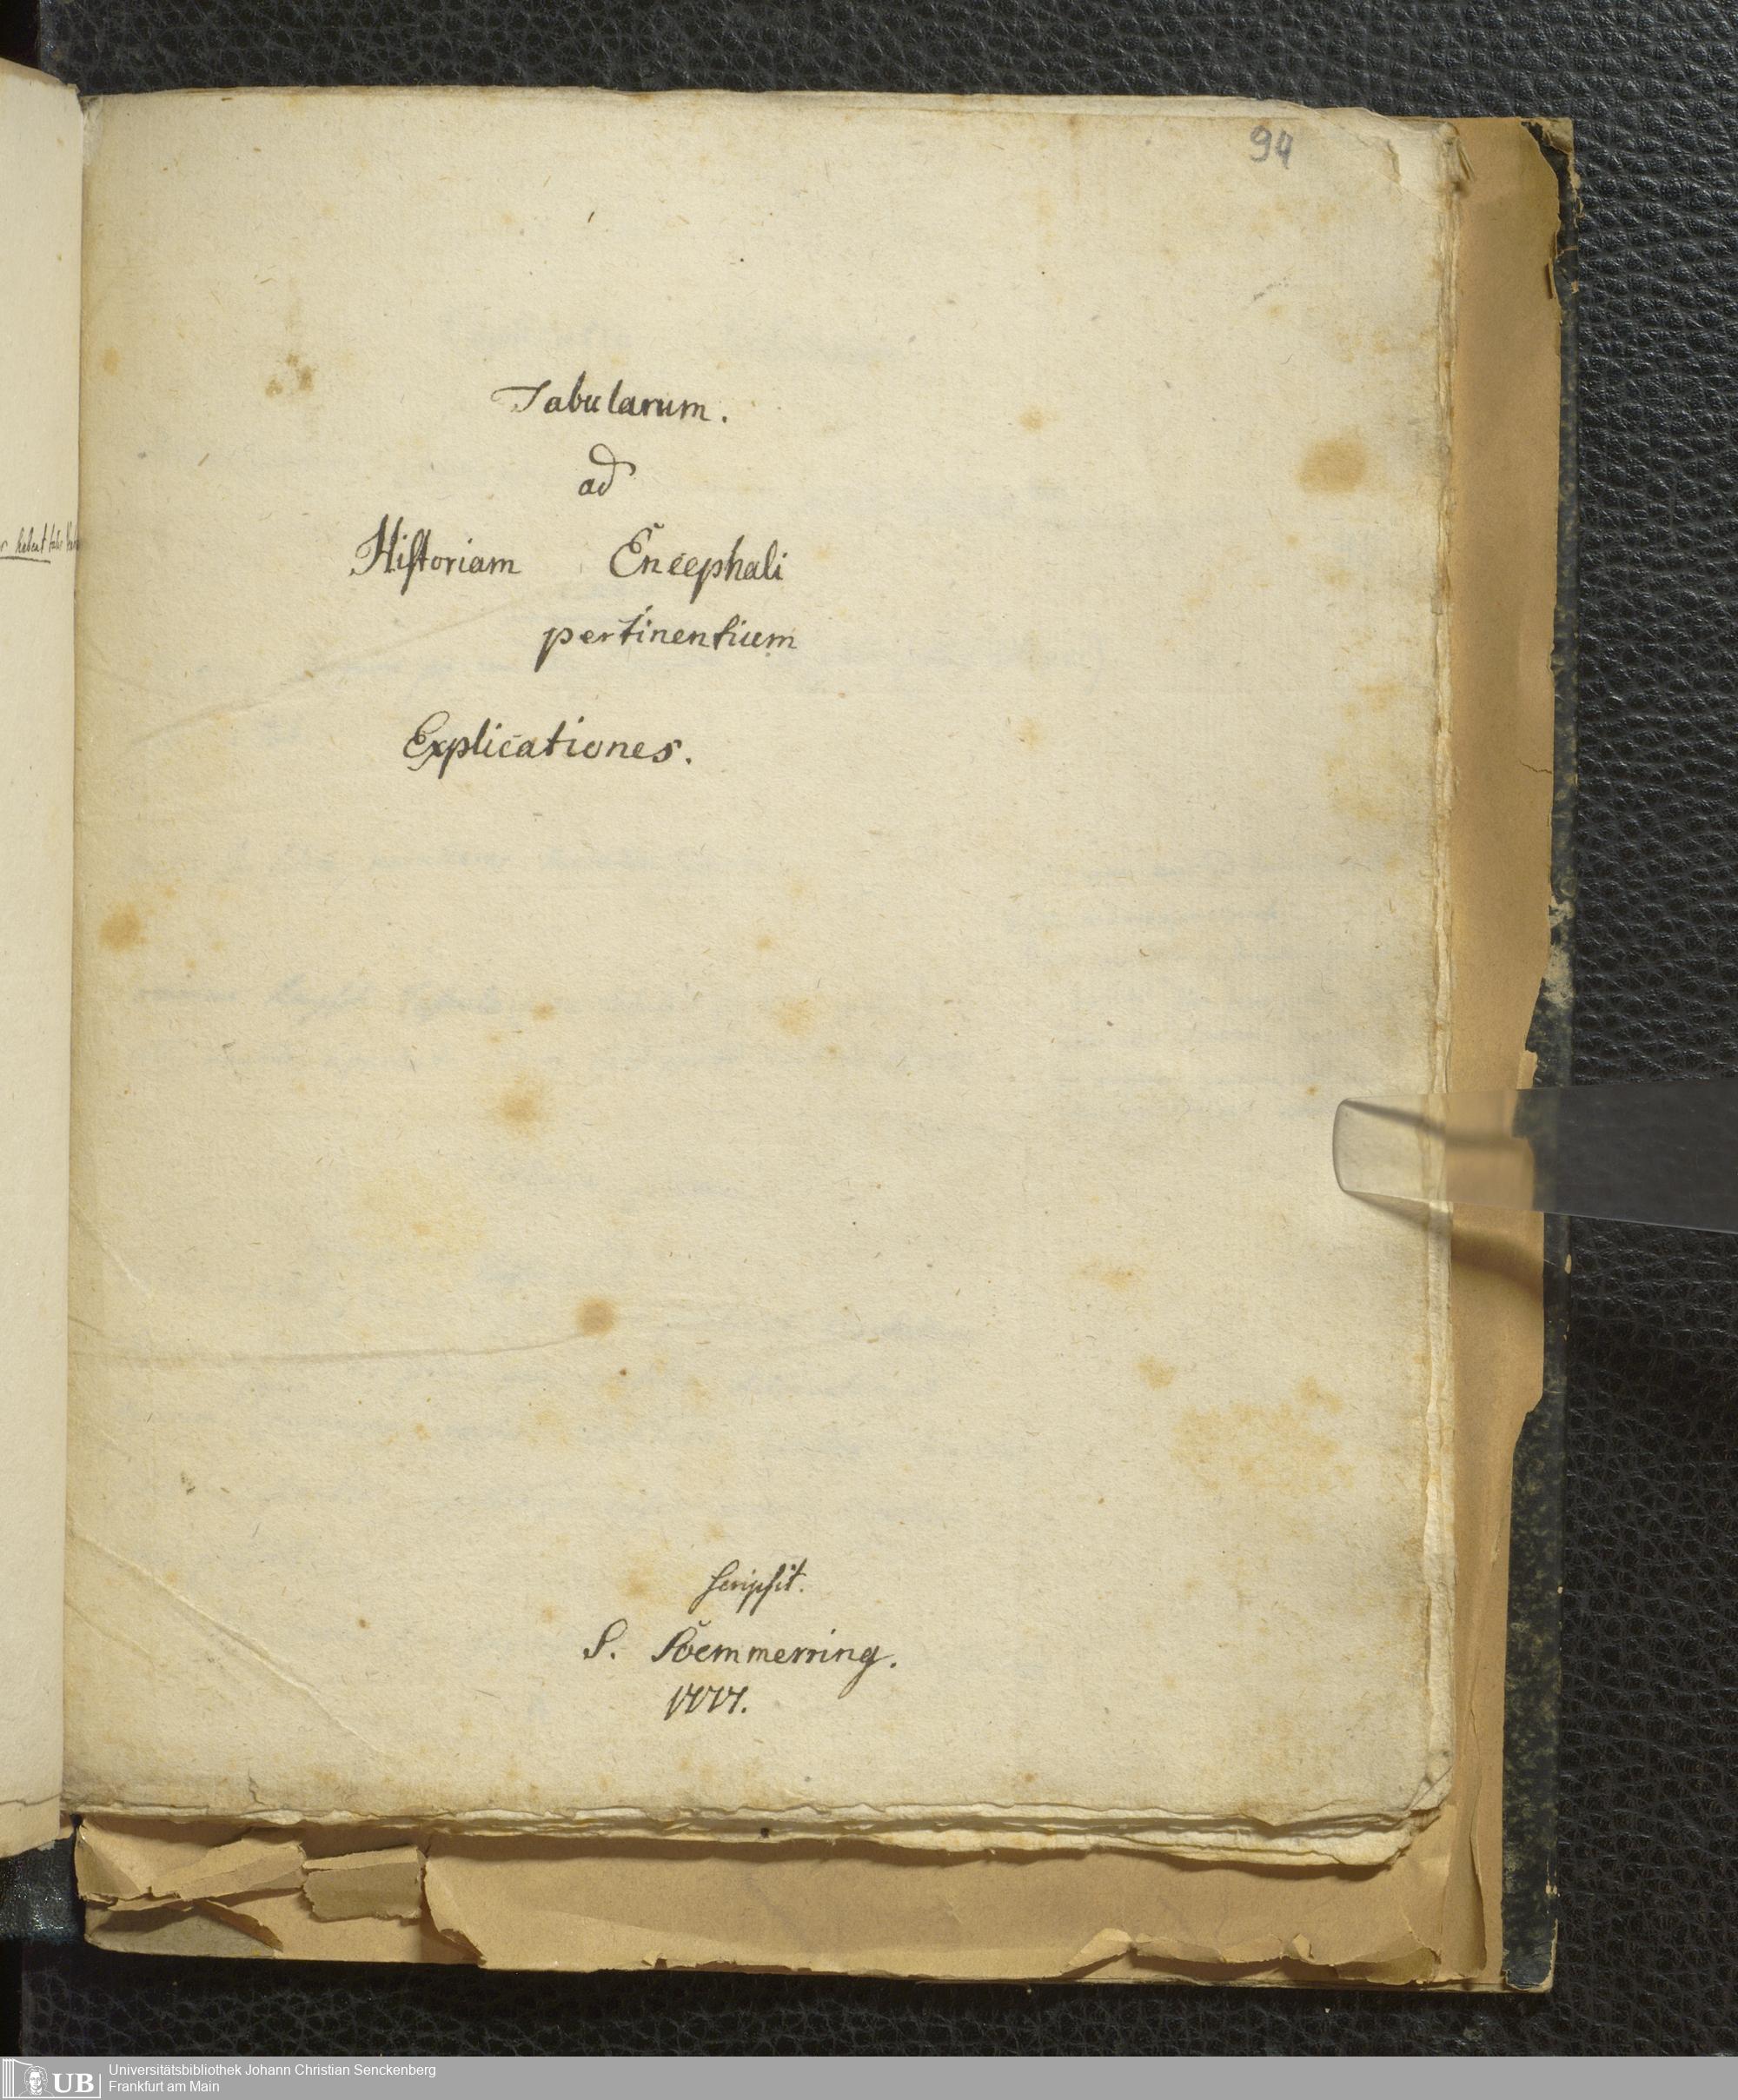 94
Tabularum.
ad
Hiſtoriam Encephali
pertinentium
Explicationes.
ſcripſit.
S. Sŏemmerring.
1777.
habent
UB Universitätsbibliothek Johann Christian Senckenberg
Frankfurt am Main